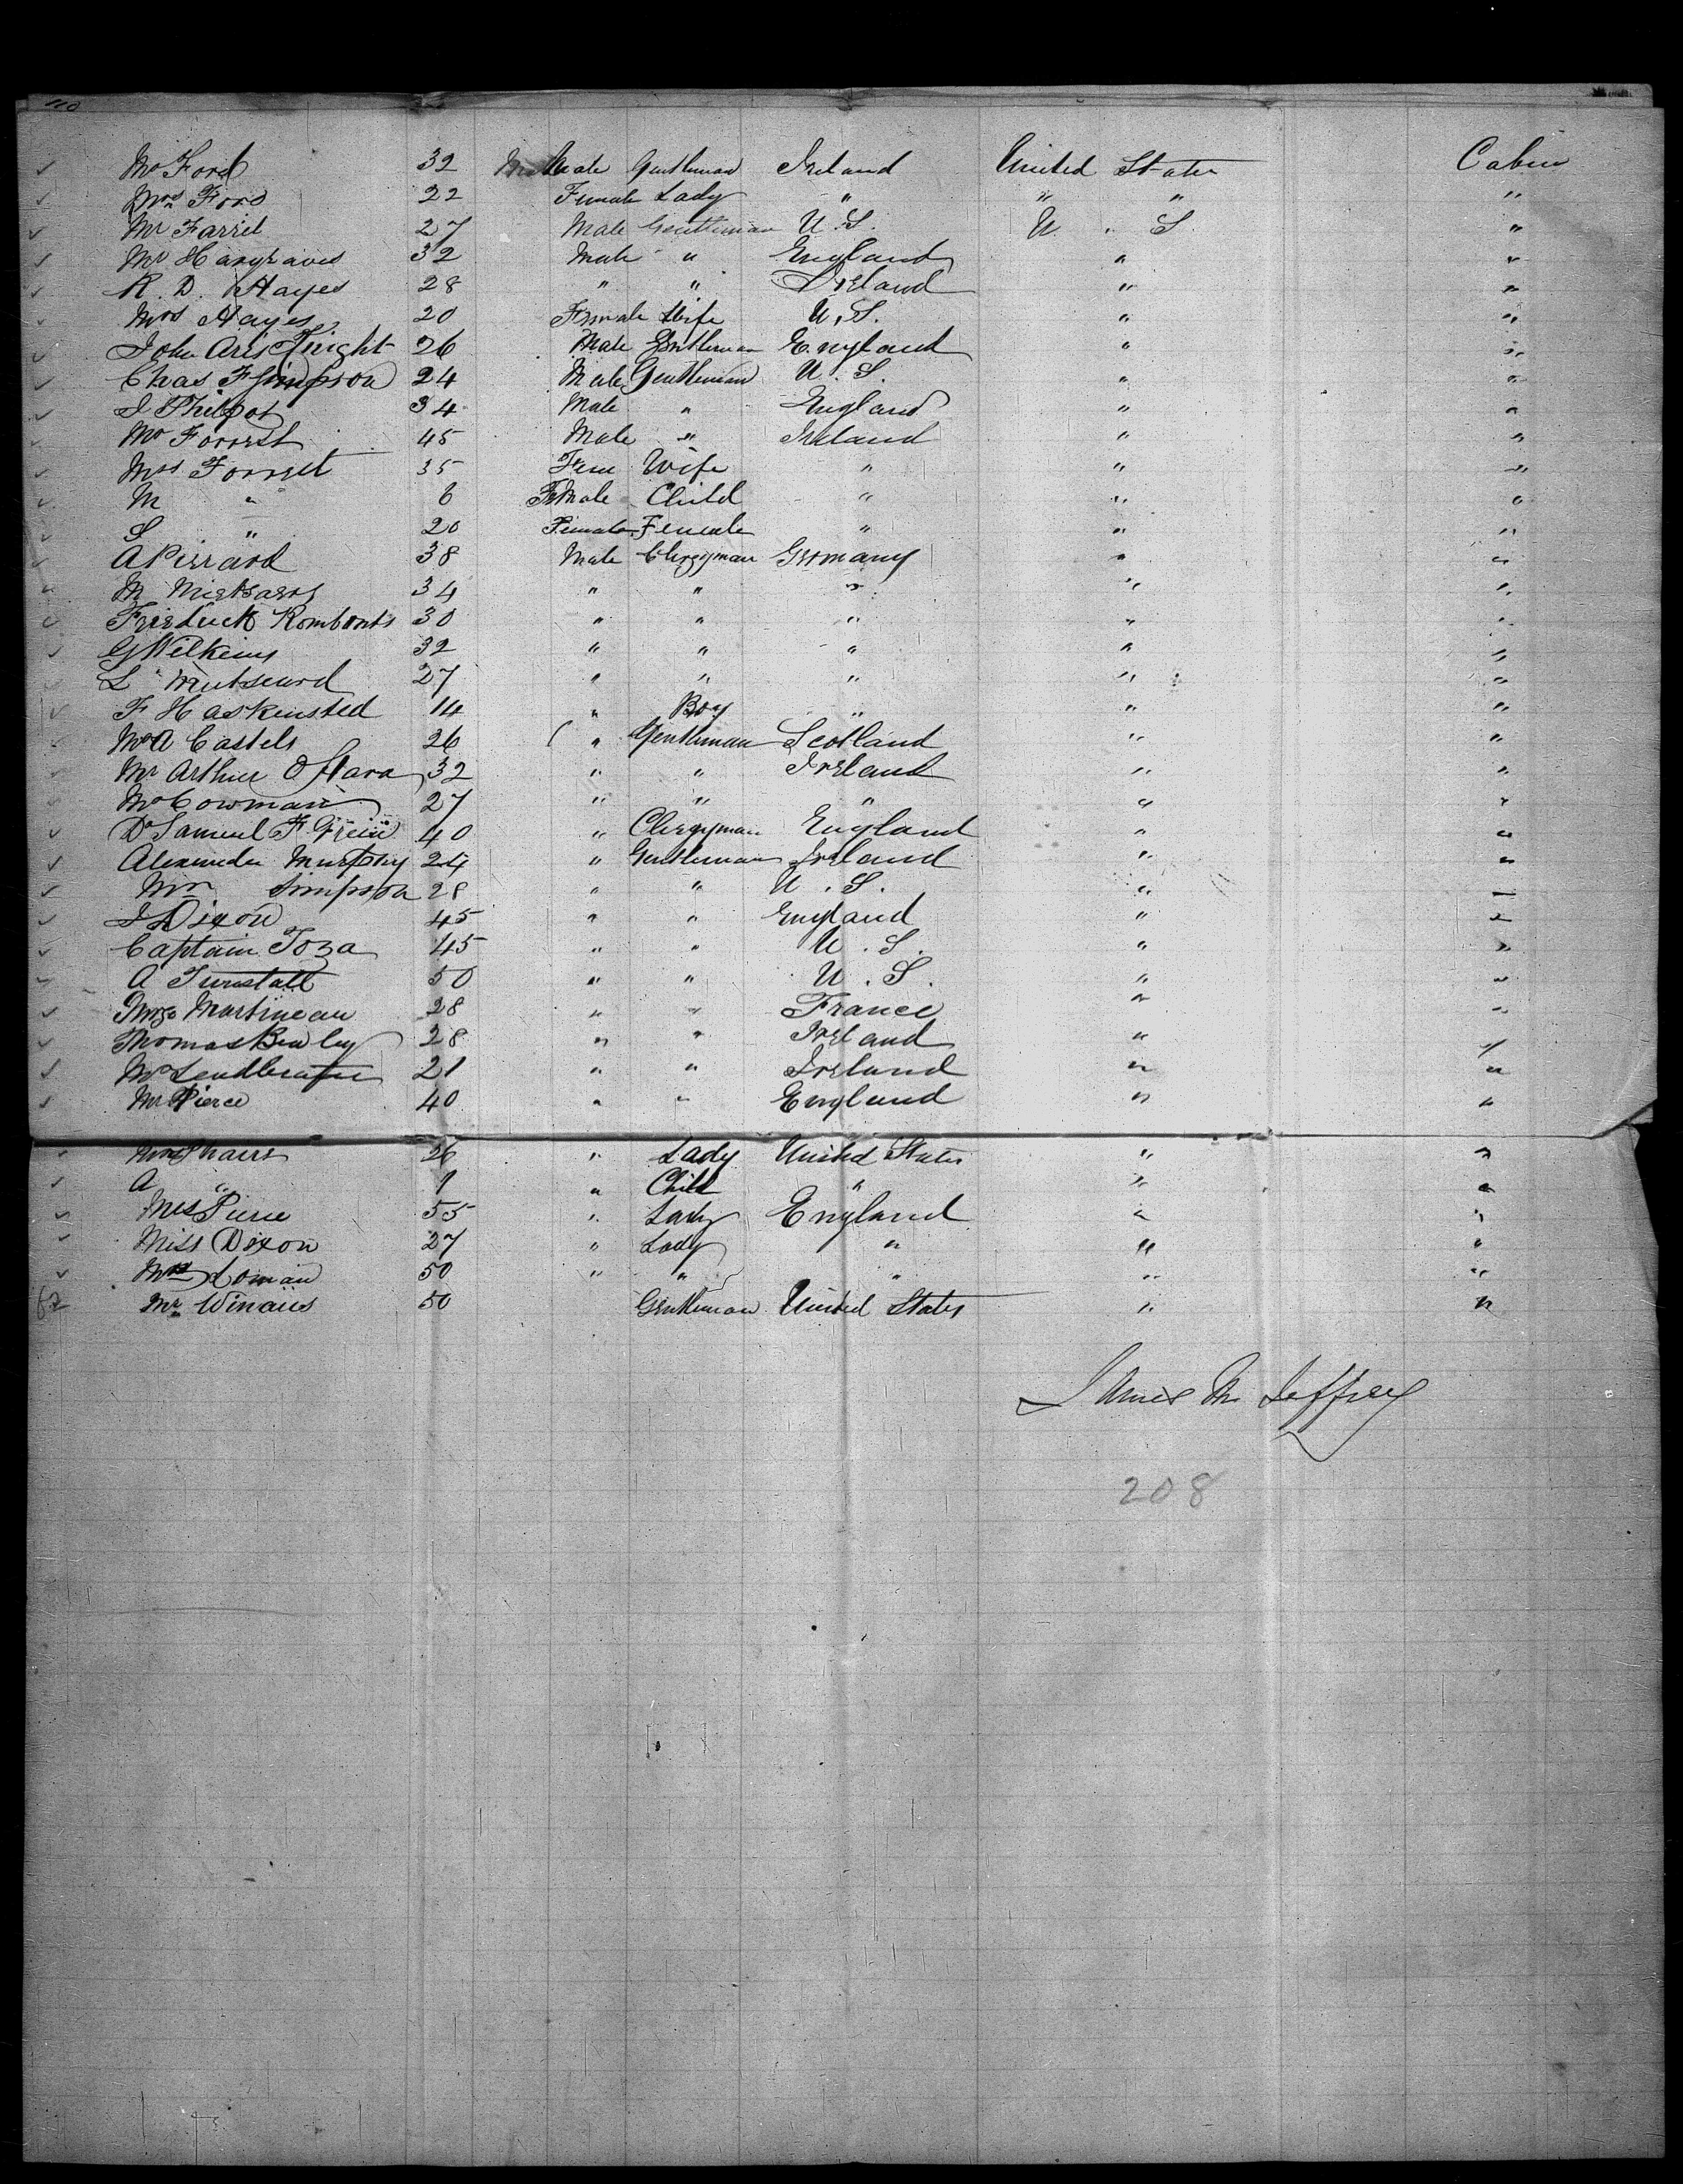 Mr Ford 32 Male Gentleman Ireland United States Cabin
Mrs Ford 22 Female Lady " " " "
Mr Farrel 27 Male Gentleman U.S. U. S. "
Mr Hargraves 32 Male " England " "
R. D. Hayes 28 " " Ireland " "
Mrs Hayes 20 Female Wife U.S. " "
John Aris Knight 26 Male Gentleman England " "
Chas F Simpson 24 Male Gentleman U.S. " "
J Philpot 34 Male " England " "
Mr Forrest 45 Male " Ireland " "
Mrs Forrest 35 Fem Wife " " "
M " 6 Female Child " " "
S " 20 Female Female " " "
A Pierrard 38 Male Clergyman Germany " "
M 34 " " " " "
Frederick 30 " " " " "
G Wilkins 32 " " " " "
L 27 " " " " "
F Haskensted 14 " Boy " " "
Mr A Castels 26 " Gentleman Scotland " "
Mr Arthur O Hara 32 " " Ireland " "
Mr Cowman 27 " " " " "
Dr Samuel F Green 40 " Clergyman England " "
Alexander Murphy 24 " Gentleman Ireland " "
Mr Simpson 28 " " U.S. " "
J Dixon 45 " " England " "
Captain Toza 45 " " U.S. " "
A Tunstall 50 " " U.S. " "
Martineau 28 " " France " "
Thomas Bewley 28 " " Ireland " "
Mr 21 " " Ireland " "
Mr Pierce 40 " " England " "
Mrs 26 " Lady United States " "
A " 1 " Child " " "
Mrs Pierce 55 " Lady England " "
Miss Dixon 27 " Lady " " "
Mrs Loman 50 " " " " "
82 Mr Winans 50 Gentleman United States " "
James M Jeffrey
208